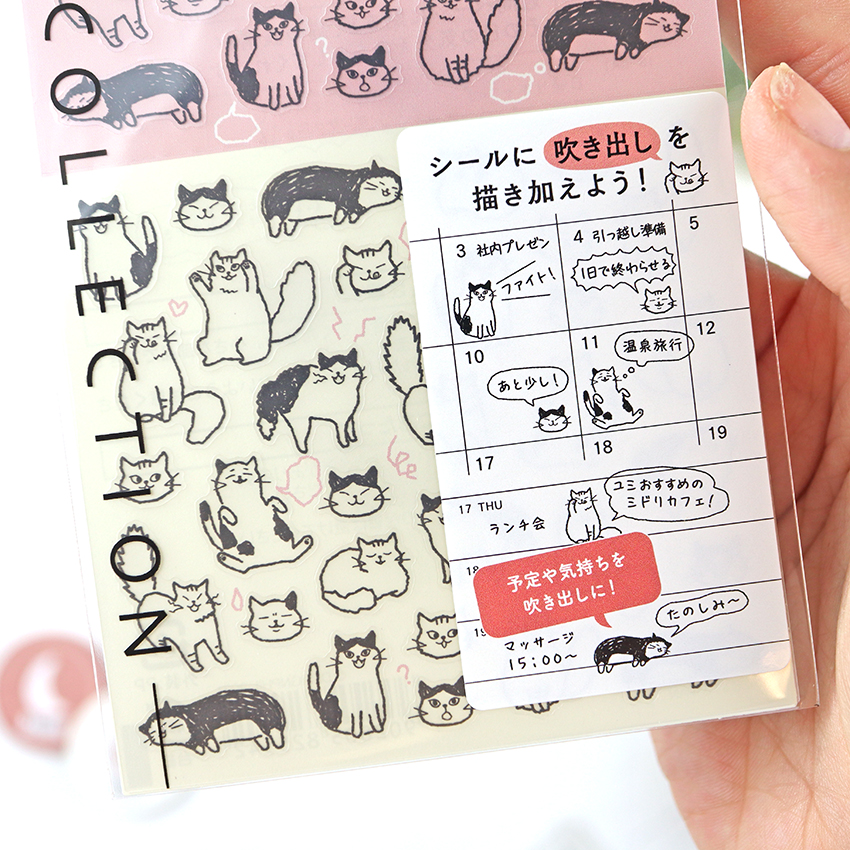 COLLECTION
シールに 吹き出し を
描き加えよう!
3 社内プレゼン
ファイト!
4 引っ越し準備
1日で終わらせる
5
10
あと少し!
11
温泉旅行
12
17
18
19
17 THU
ランチ会
ユミおすすめの
ミドリカフェ!
18
予定や気持ちを
吹き出しに!
19
マッサージ
15:00〜
たのしみ〜